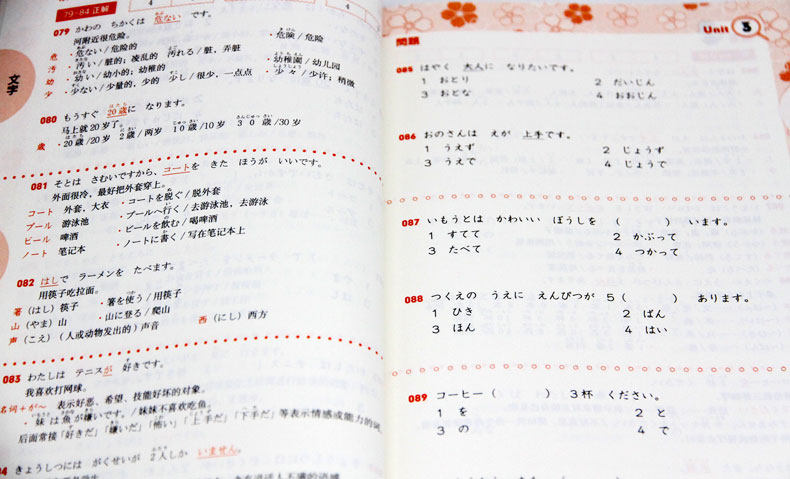 79-84 正解
4
4
079 かわの ちかくは 危ない です。
河附近很危险。
危 ・危ない/危险的 ・危険/危险
汚 ・汚い/脏的;凌乱的 汚れる/脏,弄脏
幼 ・幼い/幼小的;幼稚的 ・幼稚園/幼儿园
少 ・少ない/少量的,少的 少し/很少,一点点 ・少々/少许;稍微
080 もうすぐ 20歳に なります。
马上就20岁了。
歳 ・20歳/20岁 2歳/两岁 10歳/10岁 30歳/30岁
081 そとは さむいですから、コートを きた ほうが いいです。
外面很冷,最好把外套穿上。
コート 外套,大衣 ・コートを脱ぐ/脱外套
プール 游泳池 ・プールへ行く/去游泳池,去游泳
ビール 啤酒 ・ビールを飲む/喝啤酒
ノート 笔记本 ・ノートに書く/写在笔记本上
082 はしで ラーメンを たべます。
用筷子吃拉面。
箸(はし)筷子 ・箸を使う/用筷子
山(やま)山 ・山に登る/爬山
声(こえ)(人或动物发出的)声音 西(にし)西方
083 わたしは テニスが 好きです。
我喜欢打网球。
名词+が~ 表示好恶、希望、技能好坏的对象。
・妹は魚が嫌いです。/妹妹不喜欢吃鱼。
后面常接「好きだ」「嫌いだ」「怖い」「上手だ」「下手だ」等表示情感或能力的词。
きょうしつには がくせいが 2人しか いません。
文字
Unit 3
問題
085 はやく 大人に なりたいです。
1 おとり 2 だいじん
3 おとな 4 おおじん
086 おのさんは えが 上手です。
1 うえず 2 じょうず
3 うえで 4 じょうで
087 いもうとは かわいい ぼうしを ( ) います。
1 すてて 2 かぶって
3 たべて 4 つかって
088 つくえの うえに えんぴつが 5( ) あります。
1 ひき 2 ばん
3 ほん 4 はい
089 コーヒー( ) 3杯 ください。
1 を 2 と
3 の 4 で